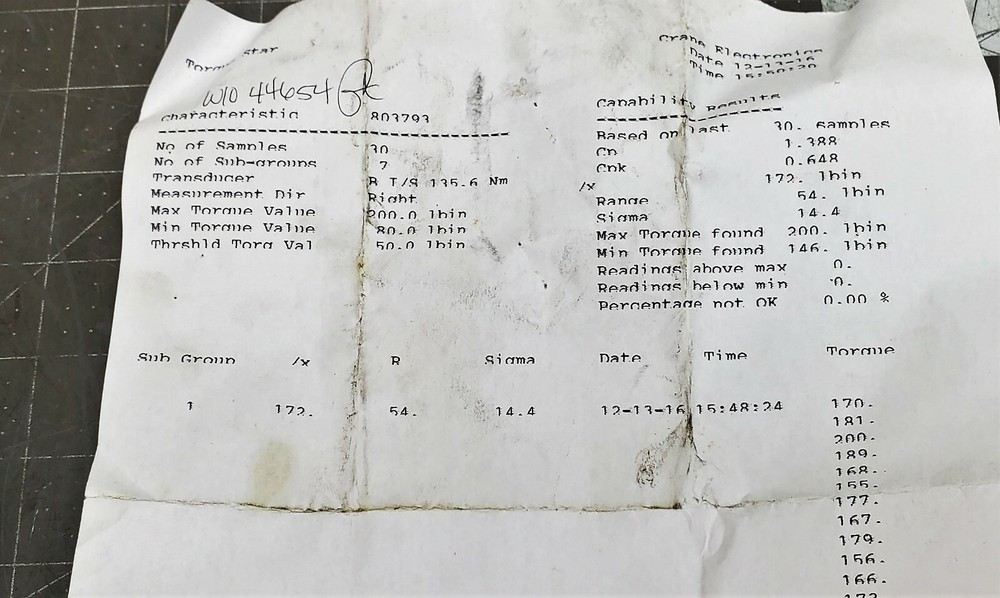 Torque Star
Crane Electronics
Date 12-13-16
Time 15:50:20
W/O 44654
Characteristic 803793
No of Samples 30
No of Sub-groups 7
Transducer R T/S 135.6 Nm
Measurement Dir Right
Max Torque Value 200.0 lbin
Min Torque Value 80.0 lbin
Thrshld Torq Val 50.0 lbin
Capability Results
Based on last 30. samples
Cp 1.388
Cpk 0.648
/x 172. lbin
Range 54. lbin
Sigma 14.4
Max Torque found 200. lbin
Min Torque found 146. lbin
Readings above max 0.
Readings below min 0.
Percentage not OK 0.00 %
Sub Group /x R Sigma Date Time Torque
1 172. 54. 14.4 12-13-16 15:48:24 170.
181.
200.
189.
168.
155.
177.
167.
179.
156.
166.